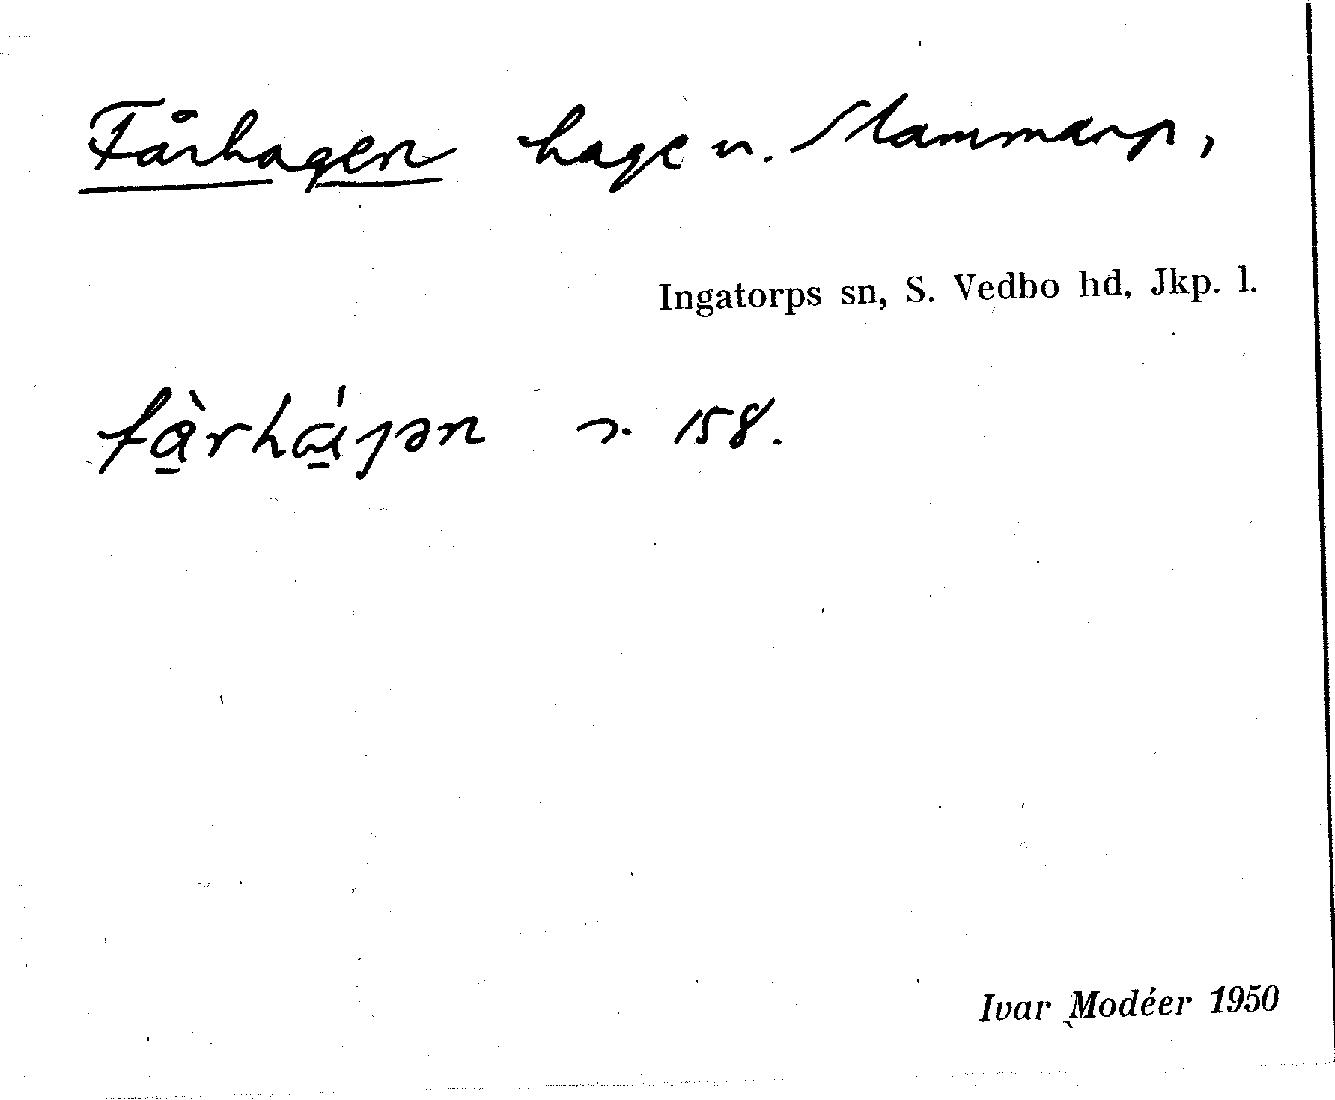 Fårhagen hage u. Slammarp,
Ingatorps sn, S. Vedbo hd, Jkp. l.
fàrhágən s. 158.
Ivar Modéer 1950